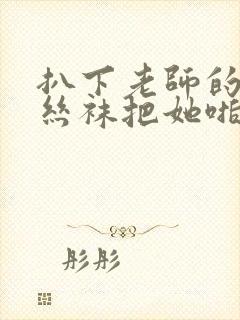 扒下老師的
絲袜把她啪
彤彤